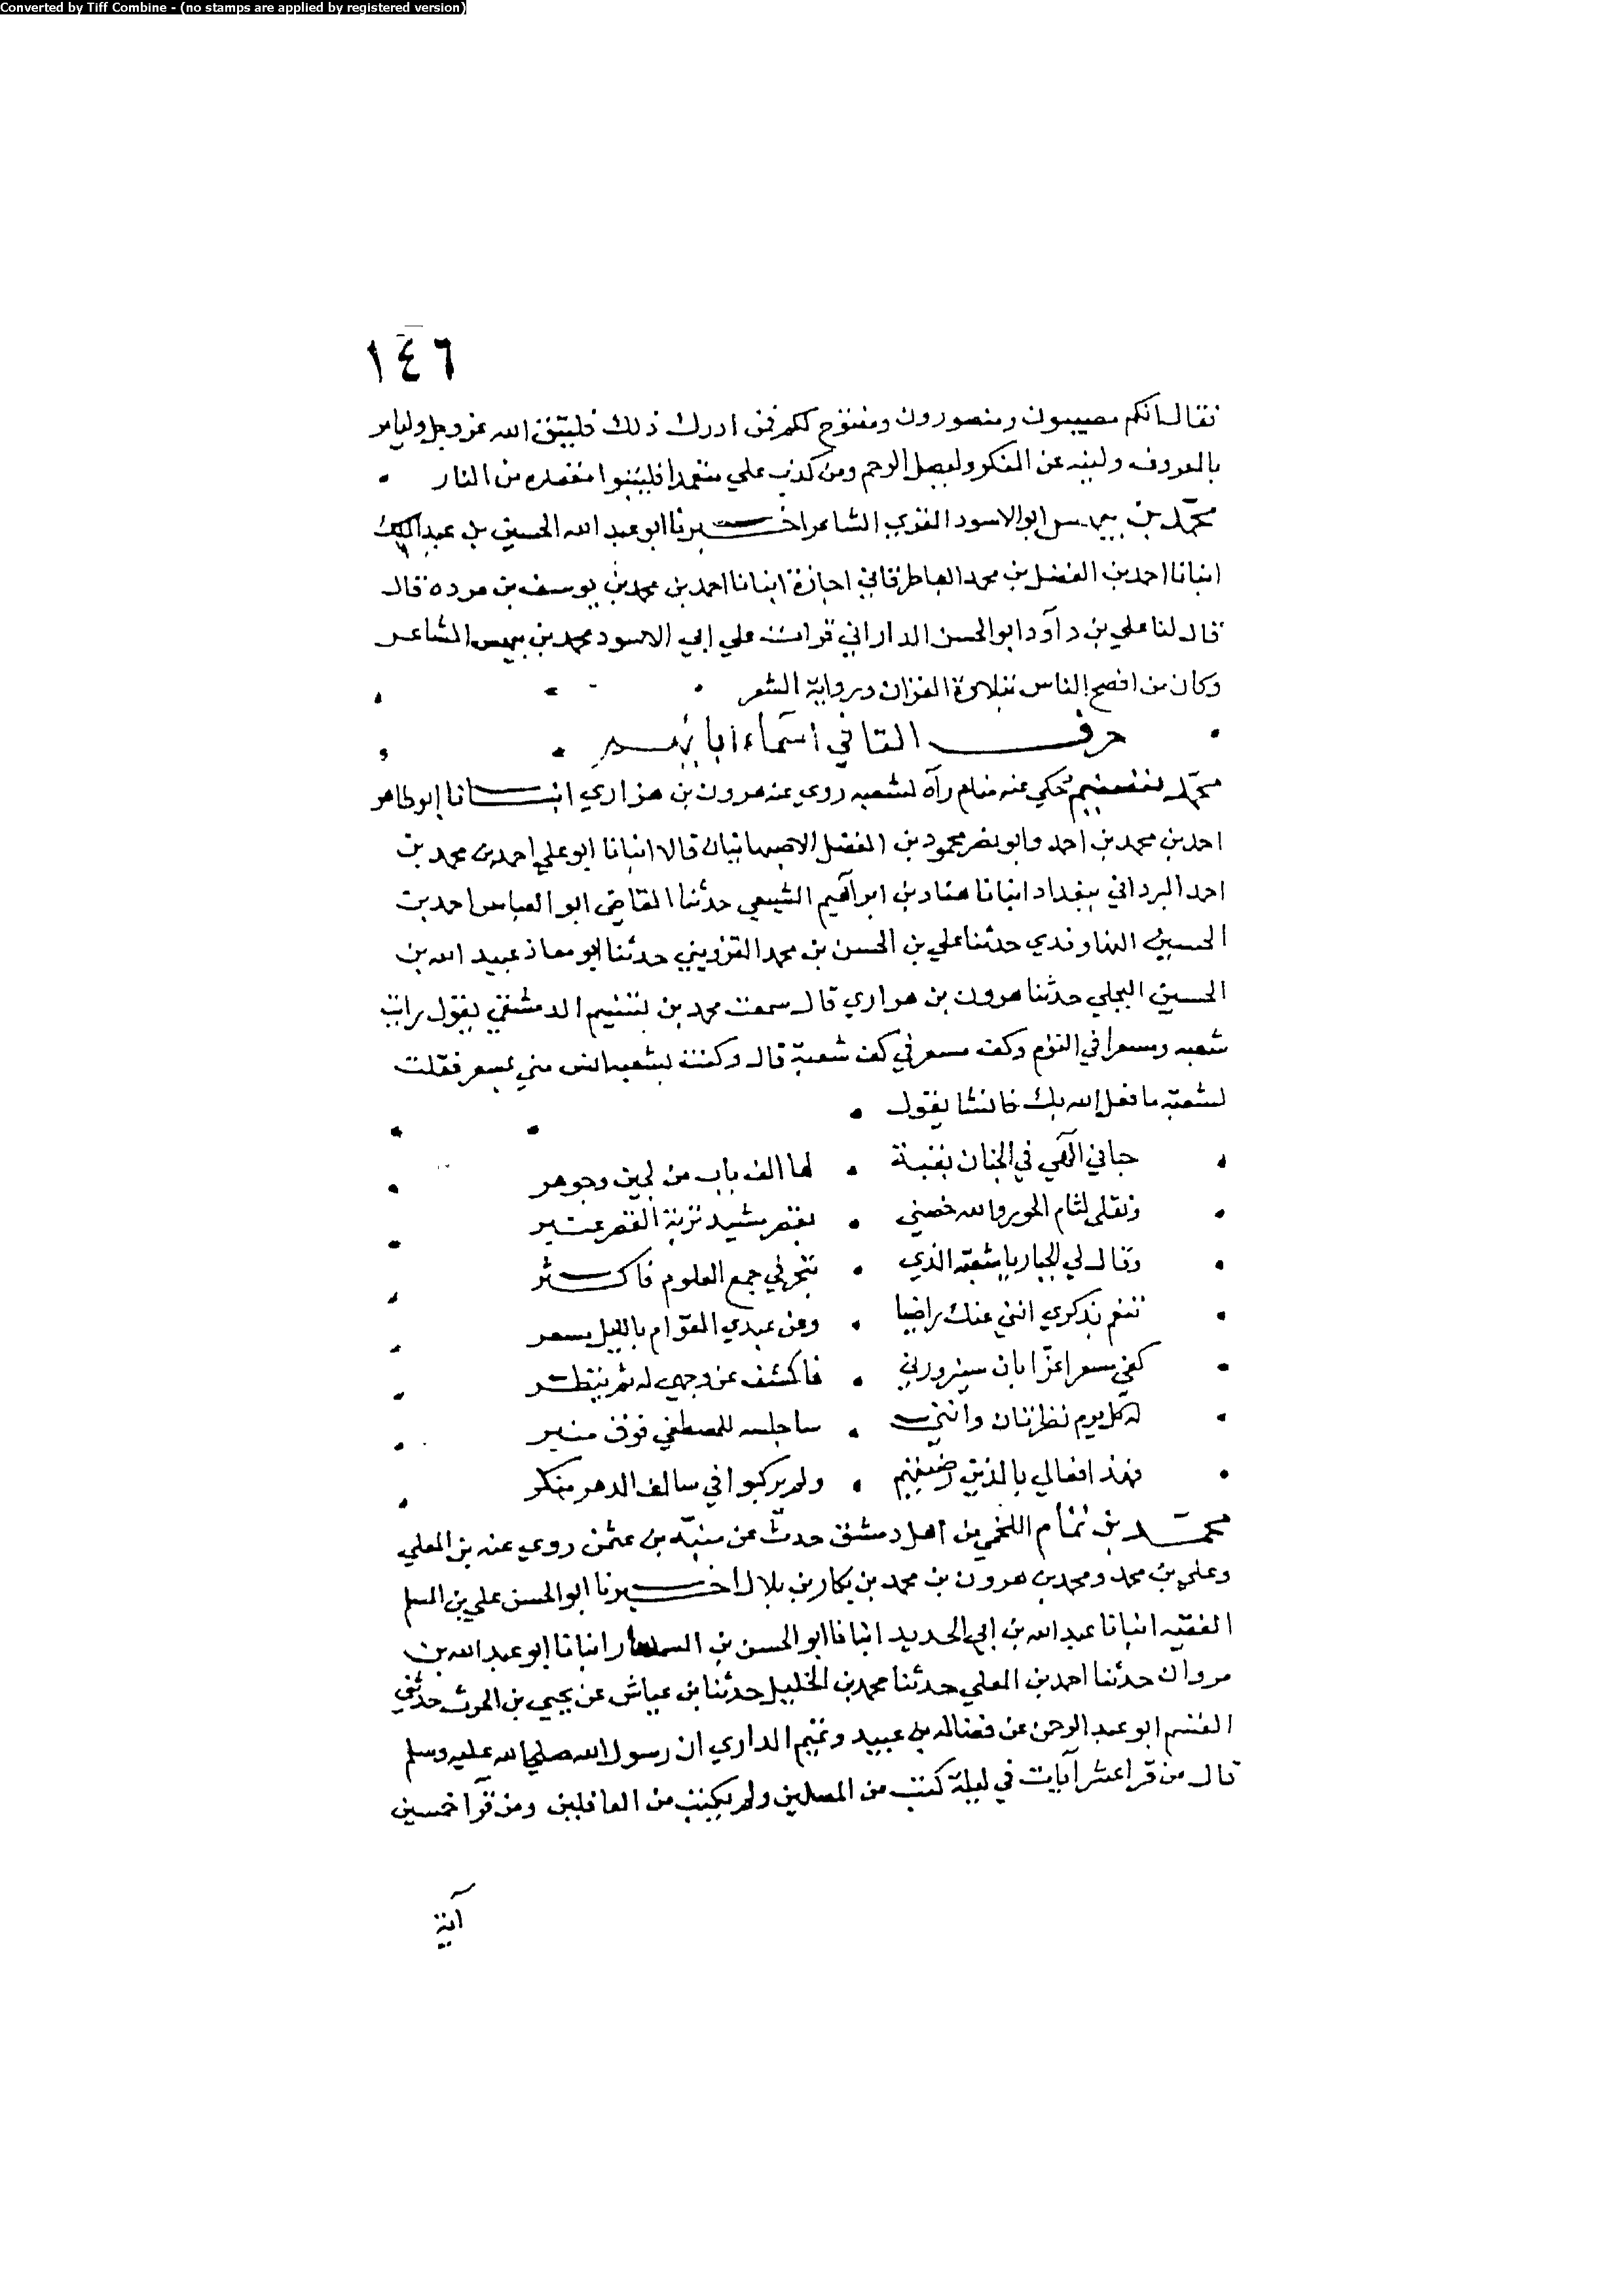 Converted by Tiff Combine - (no stamps are applied by registered version)
١٤٦
فقال انكم مصيبون ومنصورون ومفتوح لكم فمن ادرك ذلك فليتق الله عز وجل وليامر
بالمعروف ولينه عن المنكر وليصل الرحم ومن كذب علي متعمدا فليتبوا مقعده من النار
محمد بن بيهس ابو الاسود الشاعر اخبرنا ابو عبد الله الحسين بن عبد الملك
انبانا احمد بن الفضل بن محمد الباطرقاني اجازة انبانا احمد بن محمد بن يوسف بن مرده قال
قال لنا علي بن دآود ابو الحسن الداراني قرات علي ابي الاسود محمد بن بيهس الشاعر
وكان من افصح الناس بتلاوة القران وبرواية الشعر
حرف التا في اسماء ابايهم
محمد بن تسنيم حكي عنه منام رآه لشعبه روي عنه هرون بن هزاري انبانا ابو طاهر
احمد بن محمد بن احمد وابو نصر محمود بن الفضل الاصبهانيان قالا انبانا ابو علي احمد بن محمد بن
احمد البرداني ببغداد انبانا هناد بن ابرآهيم حدثنا القاضي ابو العباس احمد بن
الحسين النهاوندي حدثنا علي بن الحسن بن محمد القزويني حدثنا ابو معاذ عبيد الله بن
الحسين البجلي حدثنا هرون بن هزاري قال سمعت محمد بن تسنيم الدمشقي يقول رايت
شعبه ومسعرا في النوم وكف مسعر في كف شعبة قال وكنت بشعبه انس مني بمسعر فقلت
لشعبة ما فعل الله بك فانشا يقول
حباني الآهي في الجنان بقبة لها الف باب من لجين وجوهر
ونقلي لثام الحور والله خصني بقصر مشيد تربة القصر عنبر
وقال لي الجبار يا شعبة الذي تبحر في جمع العلوم فاكثر
تنعم بذكري انني عنك راضيا وعن عبدي القوام بالليل مسعر
كفي مسعرا عزا بان سيزورني فاكشف عن وجهي له ثم ينظر
له كل يوم نظرتان وانني ساجلسه للمصطفي فوق منبر
فهذا فعالي بالذين رضيتهم ولم يركبوا في سالف الدهر منكر
محمد بن تمام اللخمي من اهل دمشق حدث عن منبه بن عثمن روي عنه بن المعلي
وعلي بن محمد ومحمد بن هرون بن محمد بن بكار بن بلال اخبرنا ابو الحسن علي بن المسلم
الفقيه انبانا عبد الله بن ابي الحديد انبانا ابو الحسن بن السمسار انبانا ابو عبد الله بن
مروان حدثنا احمد بن المعلي حدثنا محمد بن الخليل حدثنا بن عياش عن يحيي بن الحرث حدثني
القسم ابو عبد الرحمن عن فضاله بن عبيد وتميم الداري ان رسول الله صلي الله عليه وسلم
قال من قرا عشر آيات في ليلة كتب من المصلين ولم يكتب من الغافلين ومن قرآ خمسين
آية